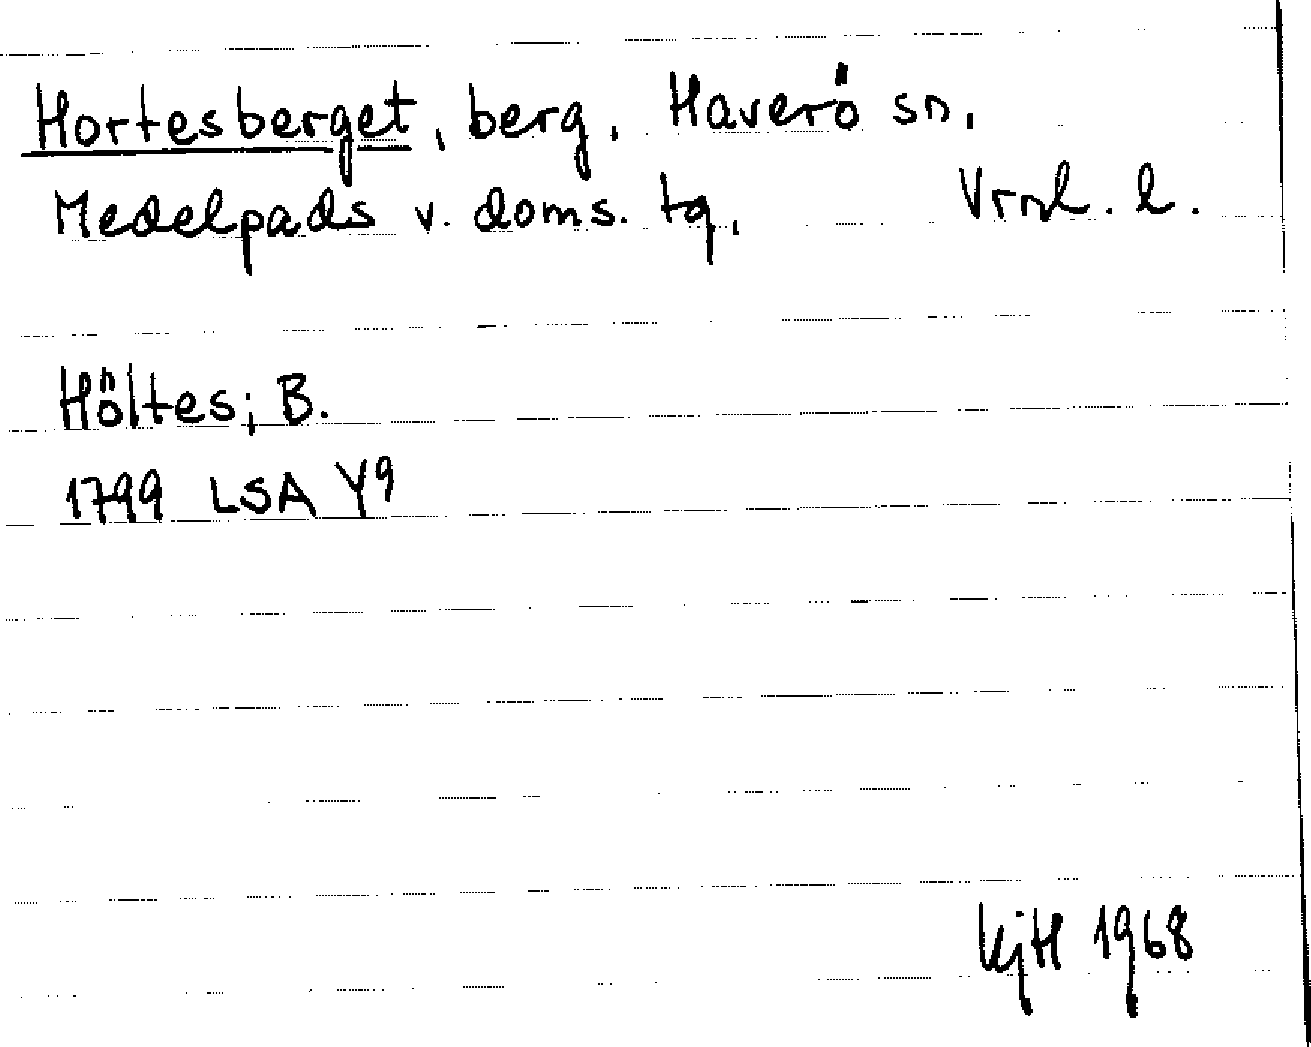 Hortesberget, berg, Haverö sn,
Medelpads v. doms. tg, Vrnl. l.
Höltes; B.
1799 LSA Y9
KjH 1968